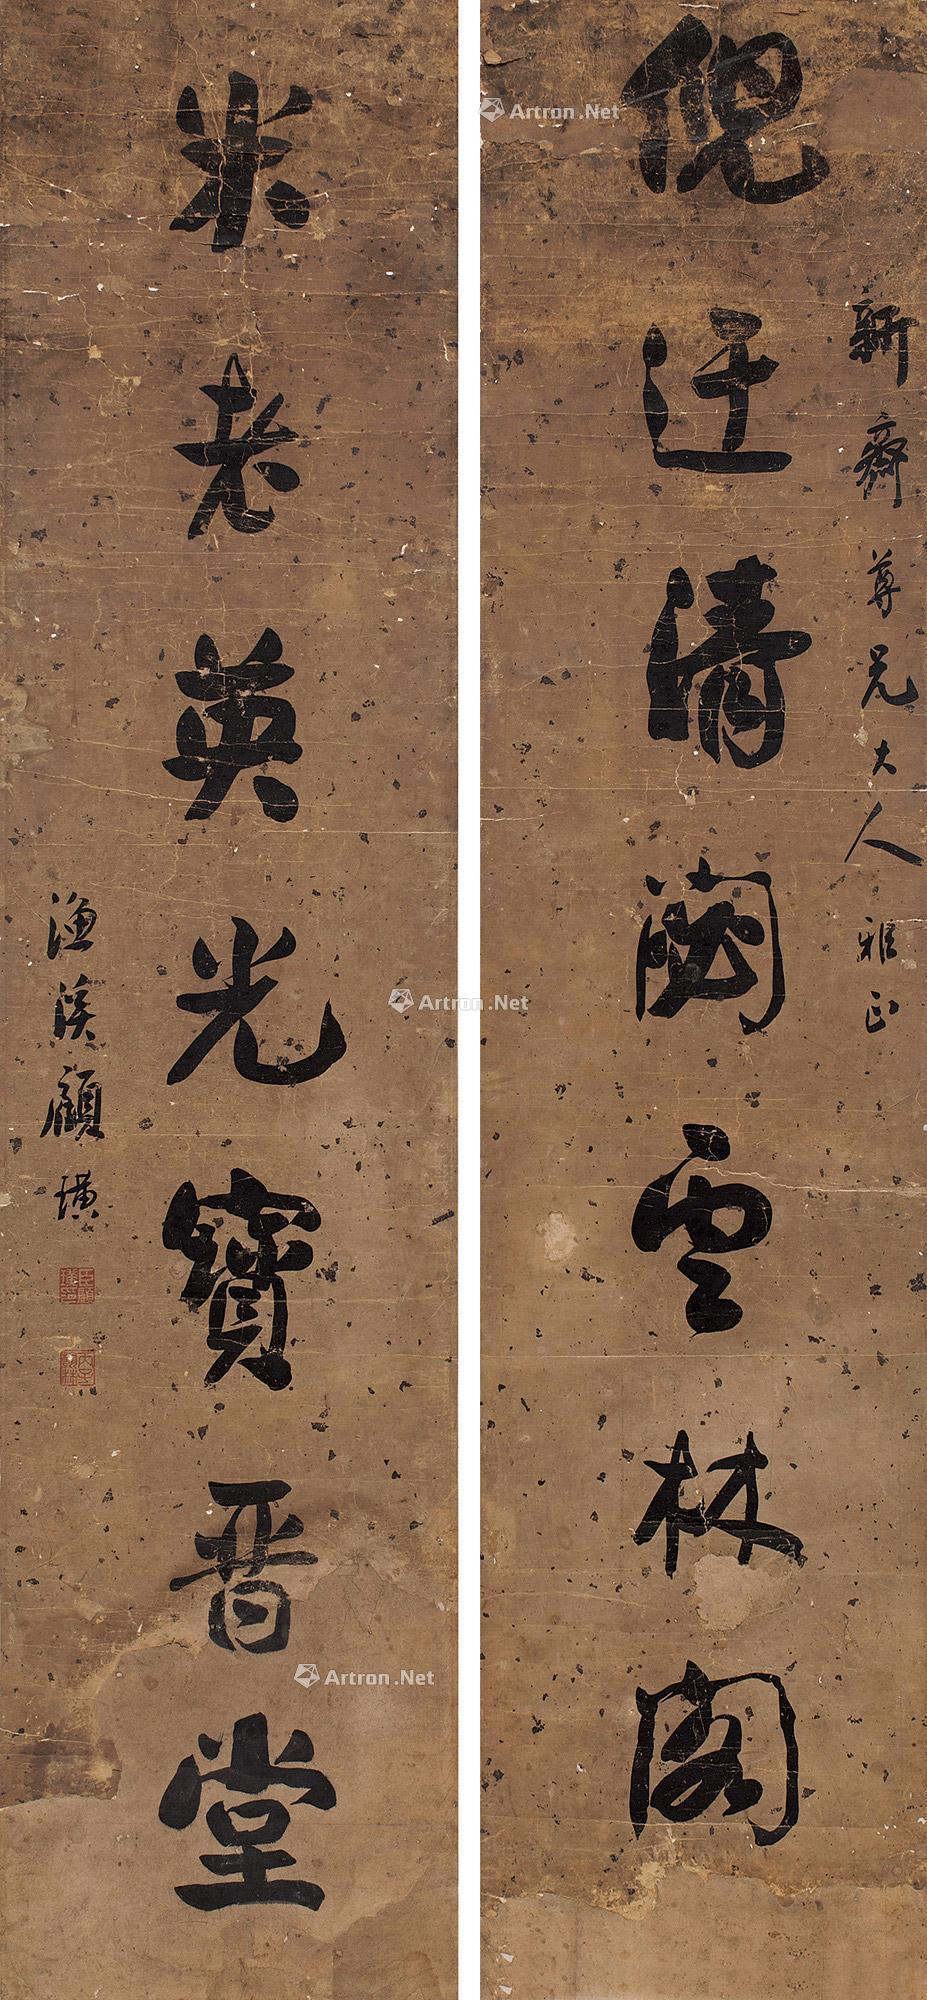 新齋尊兄大人雅正
倪迂清閟雲林閣
米老英光寶晉堂
漁溪顧璜
Artron.Net
Artron.Net
Artron.Net